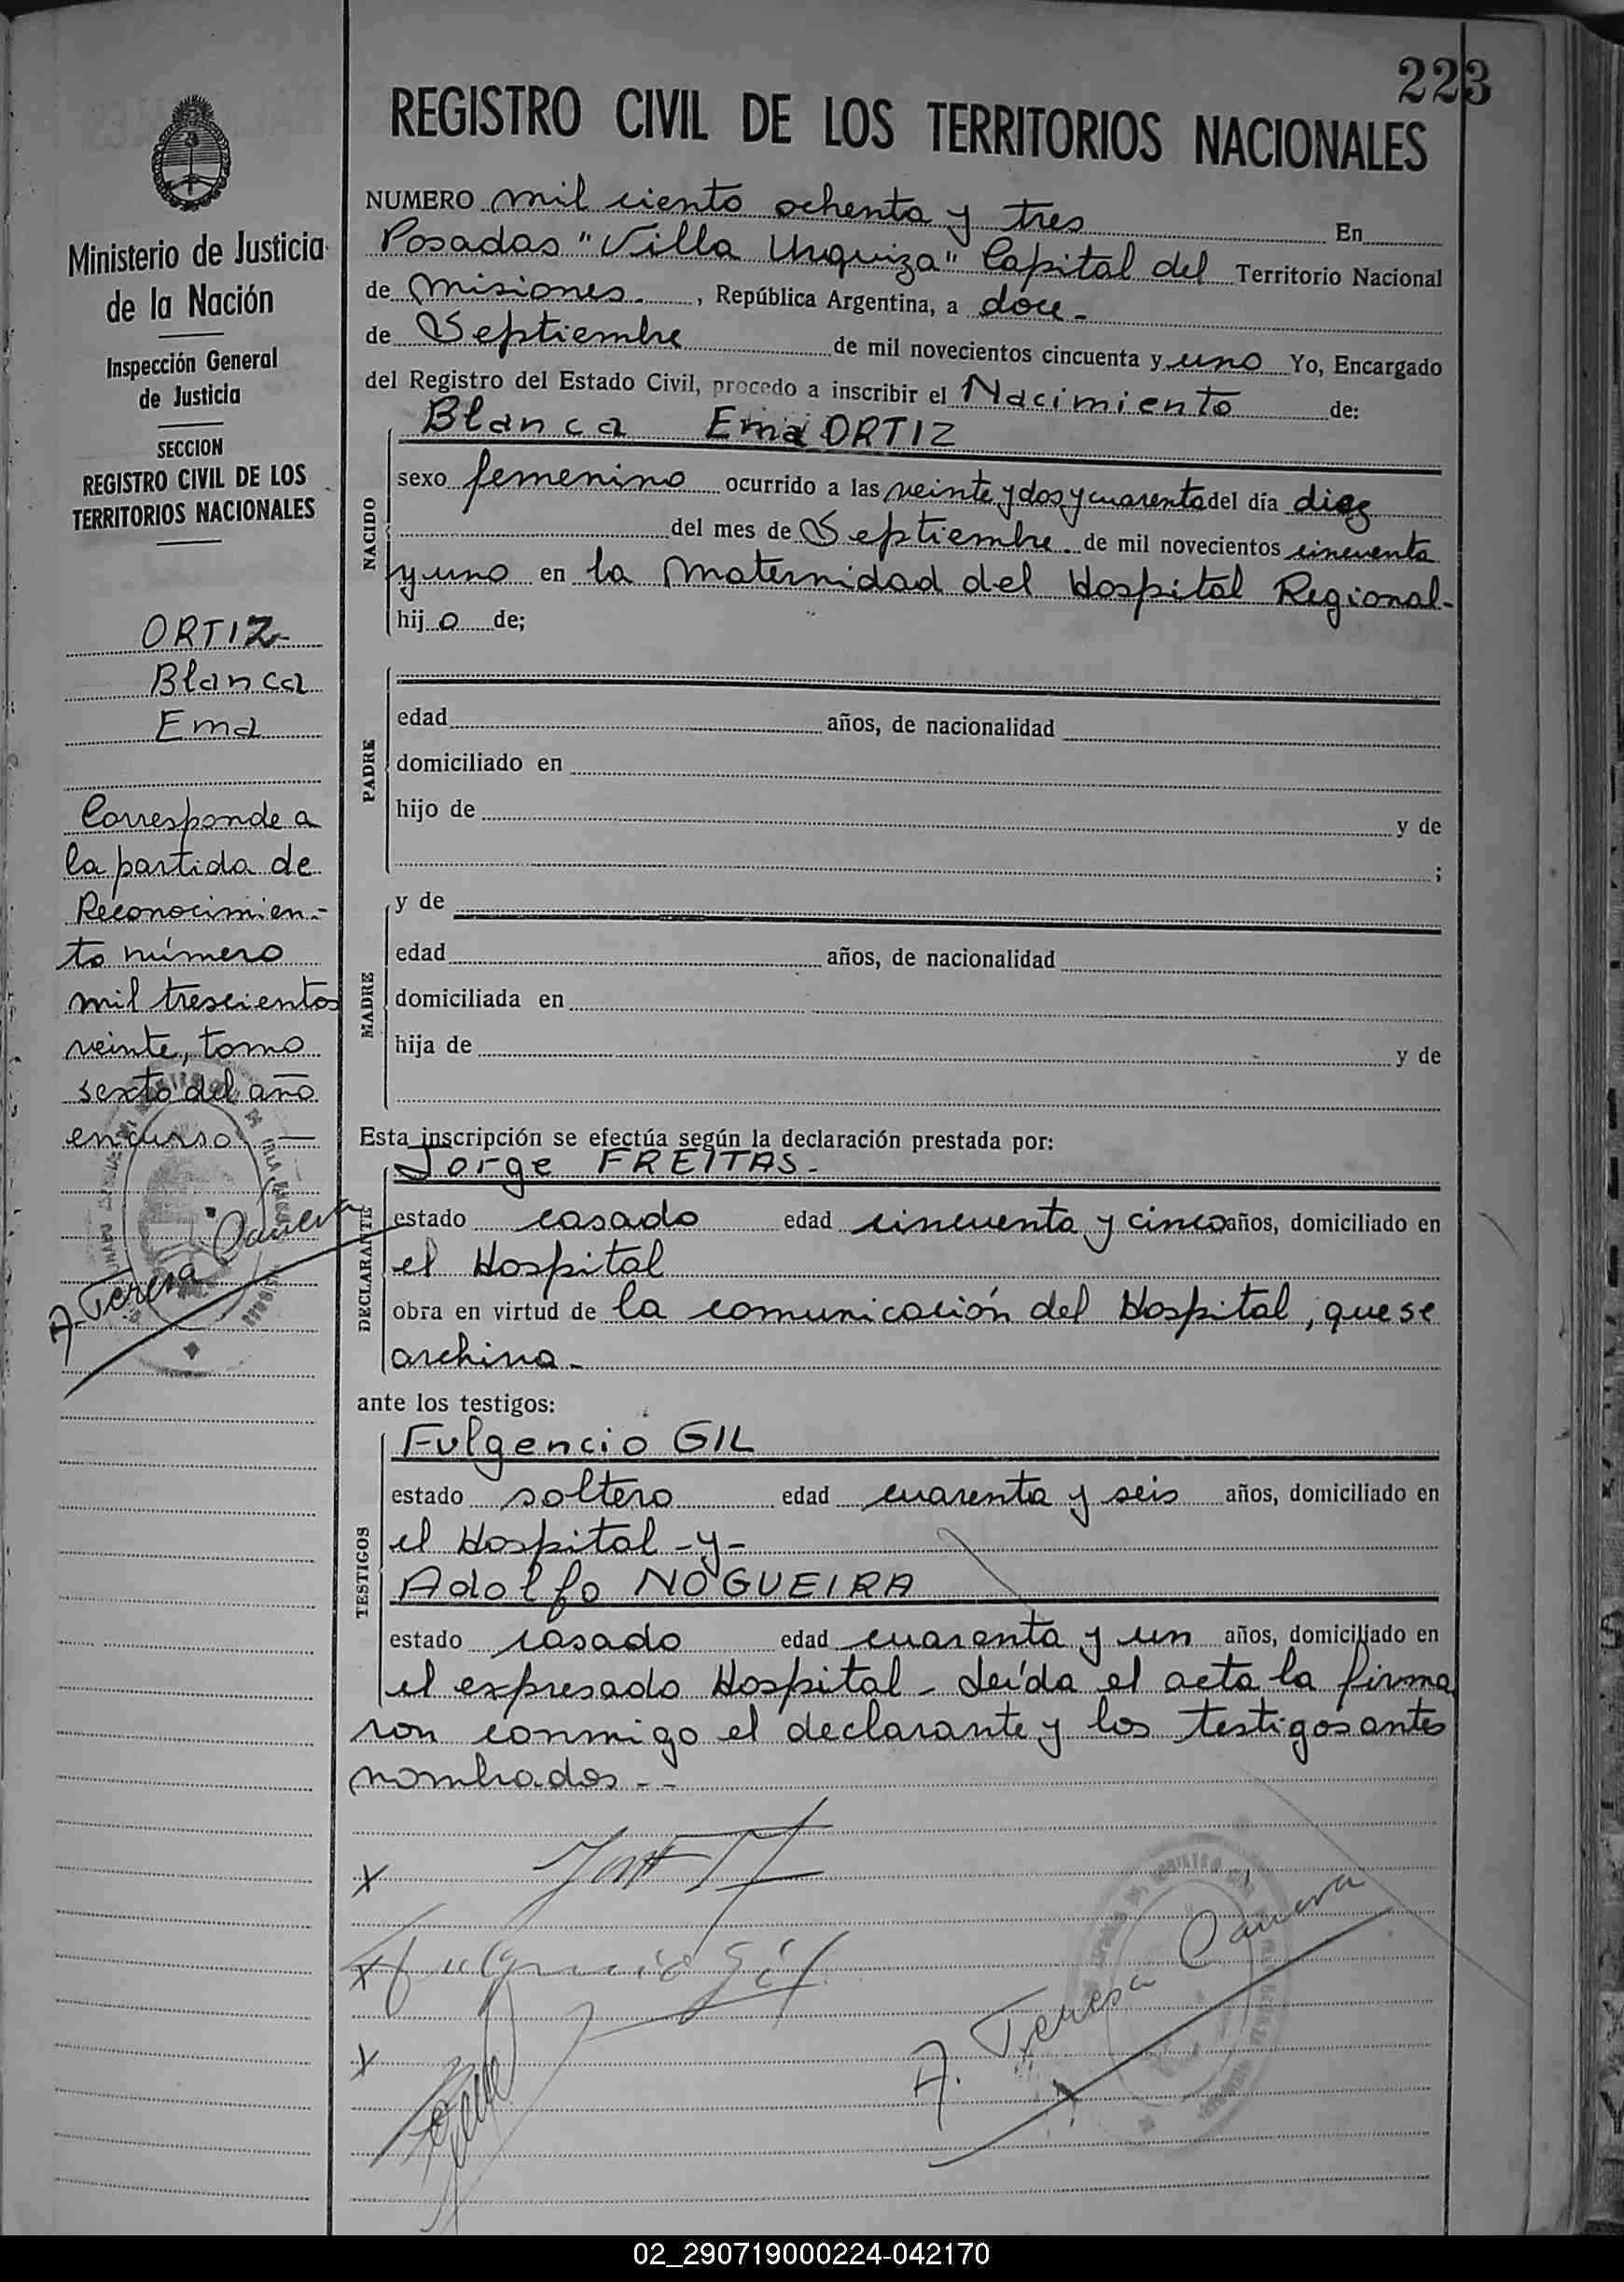 223
REGISTRO CIVIL DE LOS TERRITORIOS NACIONALES
Ministerio de Justicia
de la Nación
Inspección General
de Justicia
SECCION
REGISTRO CIVIL DE LOS
TERRITORIOS NACIONALES
ORTIZ-
Blanca
Ema
Corresponde a
la partida de
Reconocimien-
to número
mil trescientos
veinte, tomo
sexto del año
en curso —
A. Teresa
NUMERO mil ciento ochenta y tres En
Posadas "Villa Urquiza" Capital del Territorio Nacional
de Misiones. , República Argentina, a doce -
de Septiembre de mil novecientos cincuenta y uno Yo, Encargado
del Registro del Estado Civil, procedo a inscribir el Nacimiento de:
Blanca Ema ORTIZ
NACIDO
sexo femenino ocurrido a las veinte y dos y cuarenta del día diez
del mes de Septiembre. de mil novecientos cincuenta
y uno en la Maternidad del Hospital Regional-
hij o de;
PADRE
edad años, de nacionalidad
domiciliado en
hijo de y de
;
MADRE
y de
edad años, de nacionalidad
domiciliada en
hija de y de
Esta inscripción se efectúa según la declaración prestada por:
DECLARANTE
Jorge FREITAS-
estado casado edad cincuenta y cinco años, domiciliado en
el Hospital
obra en virtud de la comunicación del Hospital, que se
archiva-
ante los testigos:
TESTIGOS
Fulgencio GIL
estado soltero edad cuarenta y seis años, domiciliado en
el Hospital -y-
Adolfo NOGUEIRA
estado casado edad cuarenta y un años, domiciliado en
el expresado Hospital - Leída el acta la firma
ron conmigo el declarante y los testigos antes
nombrados - -
x
x Fulgencio Gil
x
A. Teresa
02_290719000224-042170